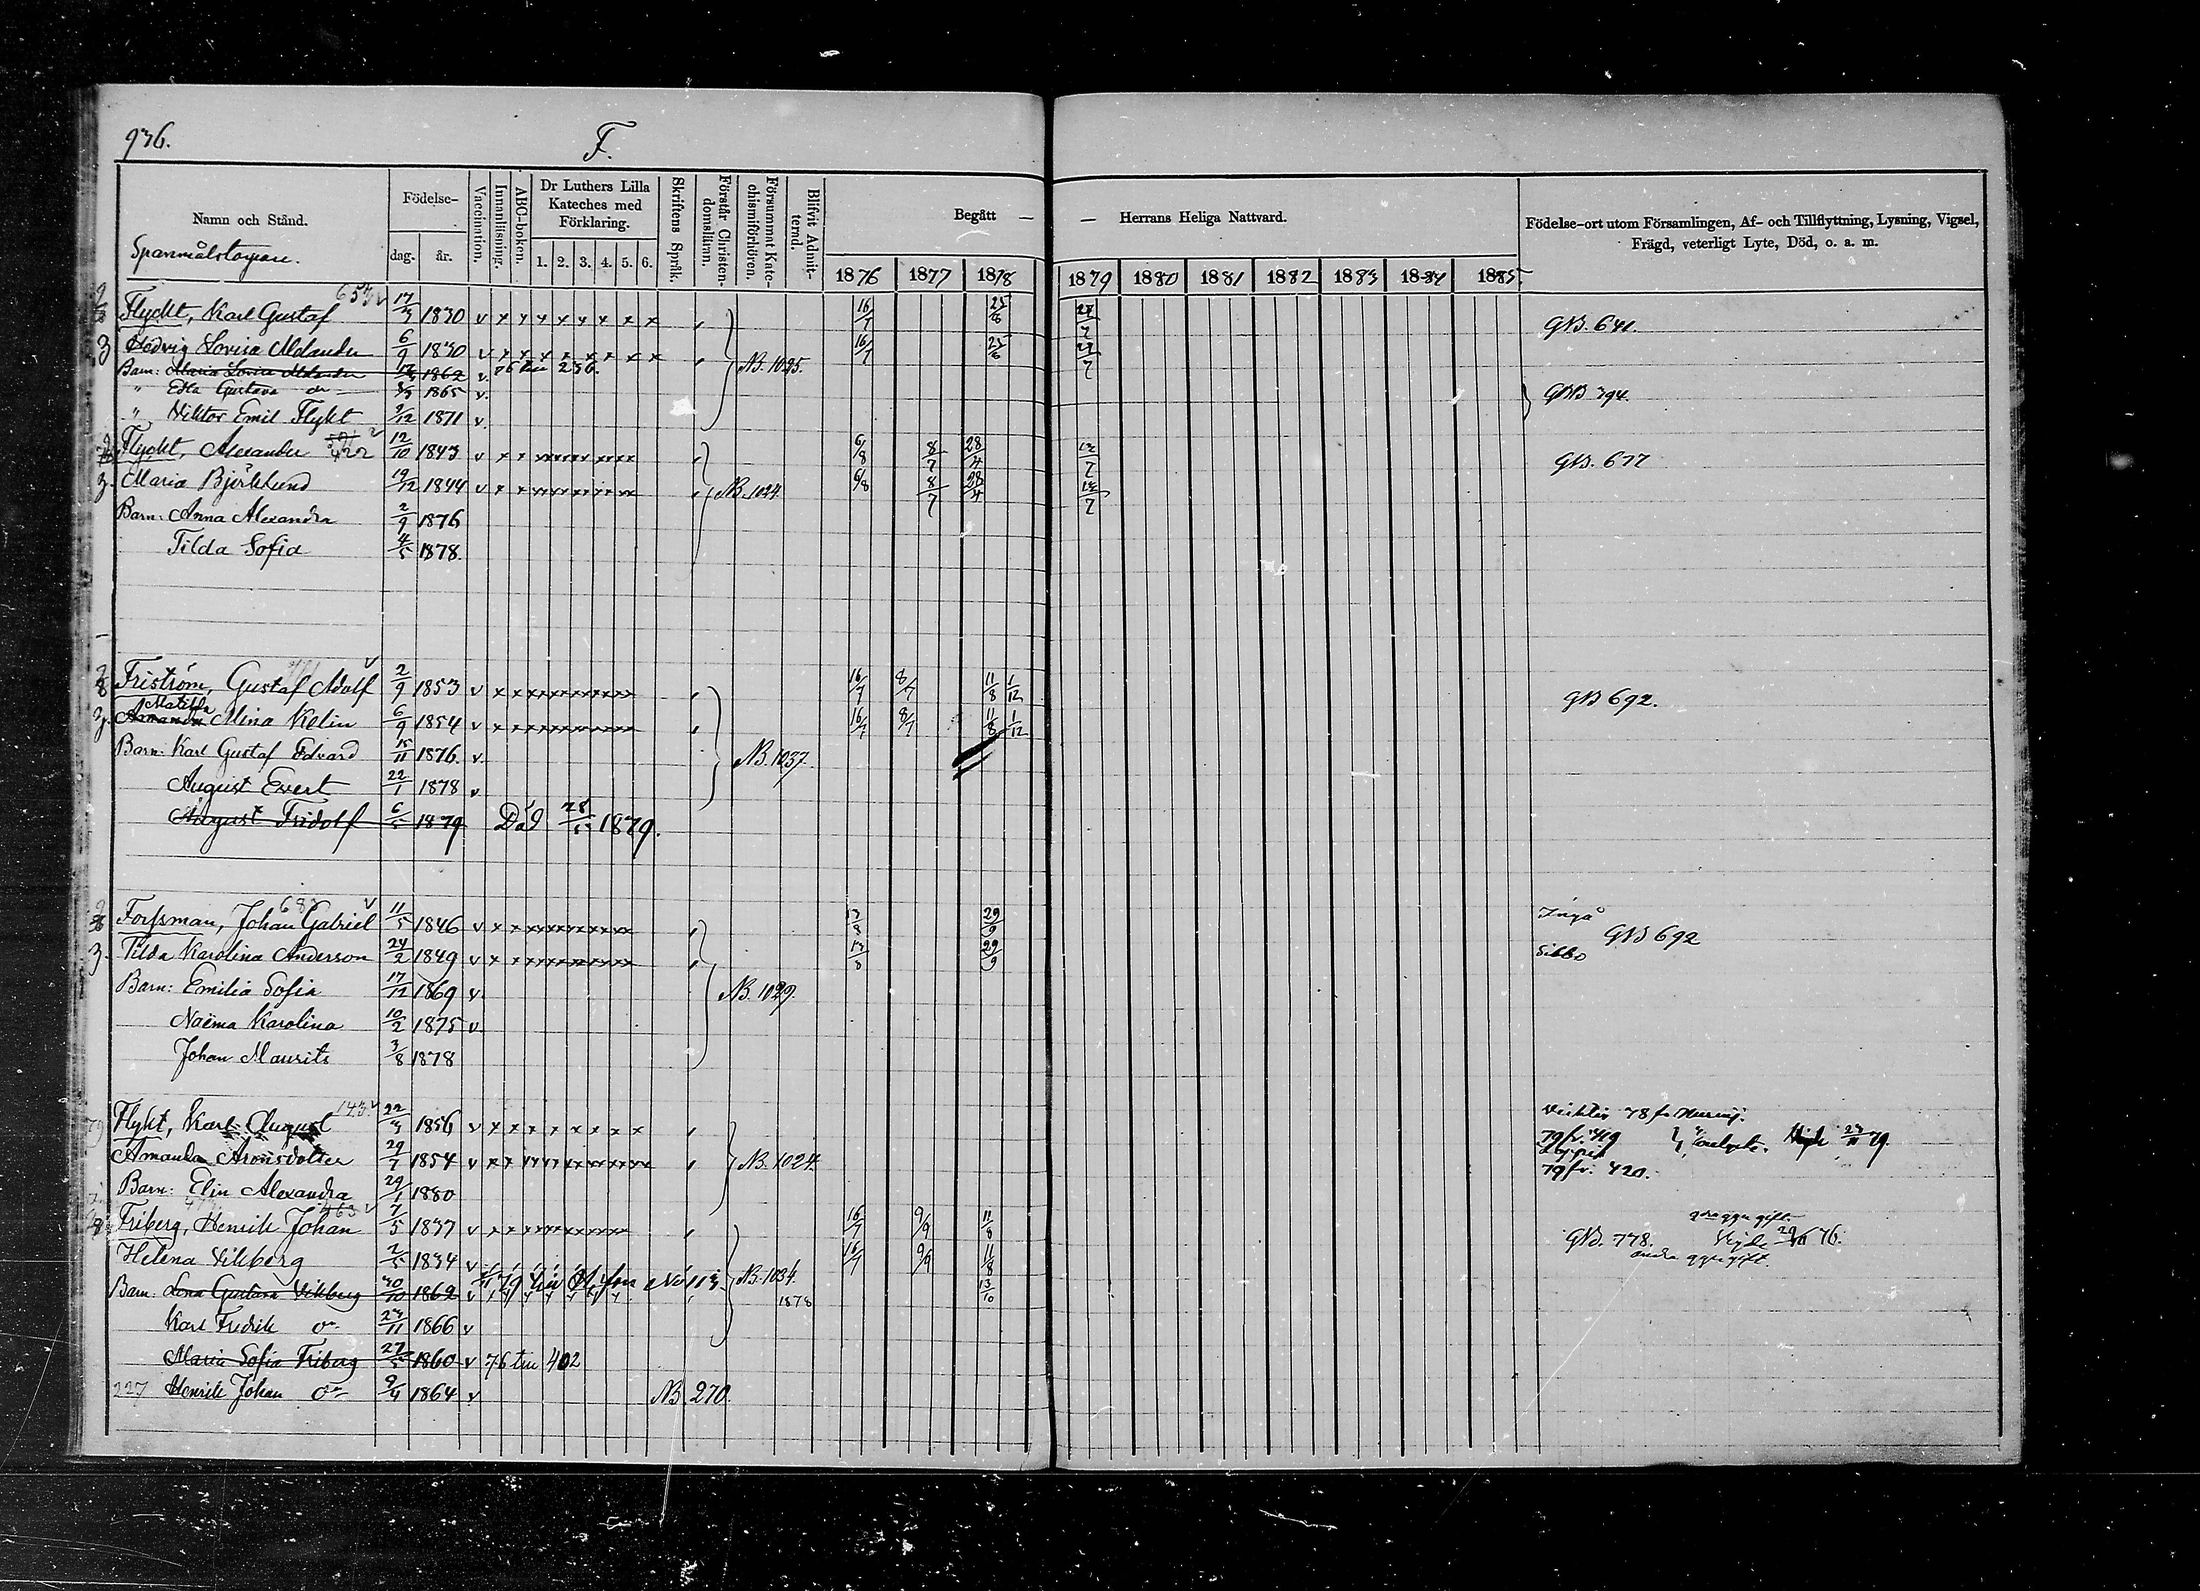 936.
F.
Namn och Stånd.
Födelse-
dag.
år.
Vaccination.
Innanläsning.
ABC-boken.
Dr Luthers Lilla
Kateches med
Förklaring.
1. 2. 3. 4. 5. 6.
Skriftens Språk.
Förstår Christen-
domsläran.
Försummat Kate-
chismiförhören.
Blifvit Admit-
terad.
Begått — — Herrans Heliga Nattvard.
1876 1877 1878 1879 1880 1881 1882 1883 1884 1885.
Födelse-ort utom Församlingen, Af- och Tillflyttning, Lysning, Vigsel,
Frägd, veterligt Lyte, Död, o. a. m.
Flyckt, Karl Gustaf 17/3 1830 v x x x x x x x x 16/7 25/6 GB. 641.
Hedvig Lovisa Molander 6/9 1830 v x x x x x x x x NB. 1025. 16/7 25/6
Barn: Maria Lovisa Molander 1862 v. 76 till 236.
" Edla Gustava do 1865 v. GBB 394.
" Viktor Emil Flykt 9/12 1871 v.
Flyckt, Alexander 422 12/10 1843 v 6/8 8/7 28/4 GB. 677
Maria Björklund 19/12 1844 v NB. 1024. 6/8 8/7 28/4
Barn: Anna Alexandra 2/9 1876
Tilda Sofia 4/5 1878.
Friström, Gustaf Adolf 2/9 1853 v 16/7 8/7 11/8 1/12 GB 692.
Amanda Matilda Mina Kelin 6/9 1854 v 16/7 8/7 11/8 1/12
Barn: Karl Gustaf Edvard 15/11 1876. v NB. 1037.
August Evert 22/1 1878 v
August Fridolf 6/5 1879 Död 28/5 1879.
Forssman, Johan Gabriel 11/5 1846 v 13/8 29/9 Ingå
GB 692
Tilda Karolina Anderson 24/2 1849 v 13/8 29/9 Sibbo
Barn: Emilia Sofia 17/12 1869 v NB. 1029.
Naëma Karolina 10/2 1875 v
Johan Maurits 3/8 1878
Flykt, Karl August 143 v 22/3 1856 v x x x x x x x x
Amanda Aronsdotter 29/7 1854 v NB. 1024. 79 fr. 419
79 fr. 420.
Barn: Elin Alexandra 29/1 1880
Friberg, Henrik Johan 7/5 1837 v 16/7 9/9 11/8
Helena Vikberg 2/5 1834 v 16/7 9/9 11/8 GB. 778. 76.
andra ggn gift.
Barn: Lena Gustava Vikberg 30/10 1862 v NB. 1034. 1878 13/10
Karl Fredrik do 23/11 1866 v
Maria Sofia Friberg 27/5 1860 v 76 till 402
227 Henrik Johan do 9/4 1864 v NB. 270.